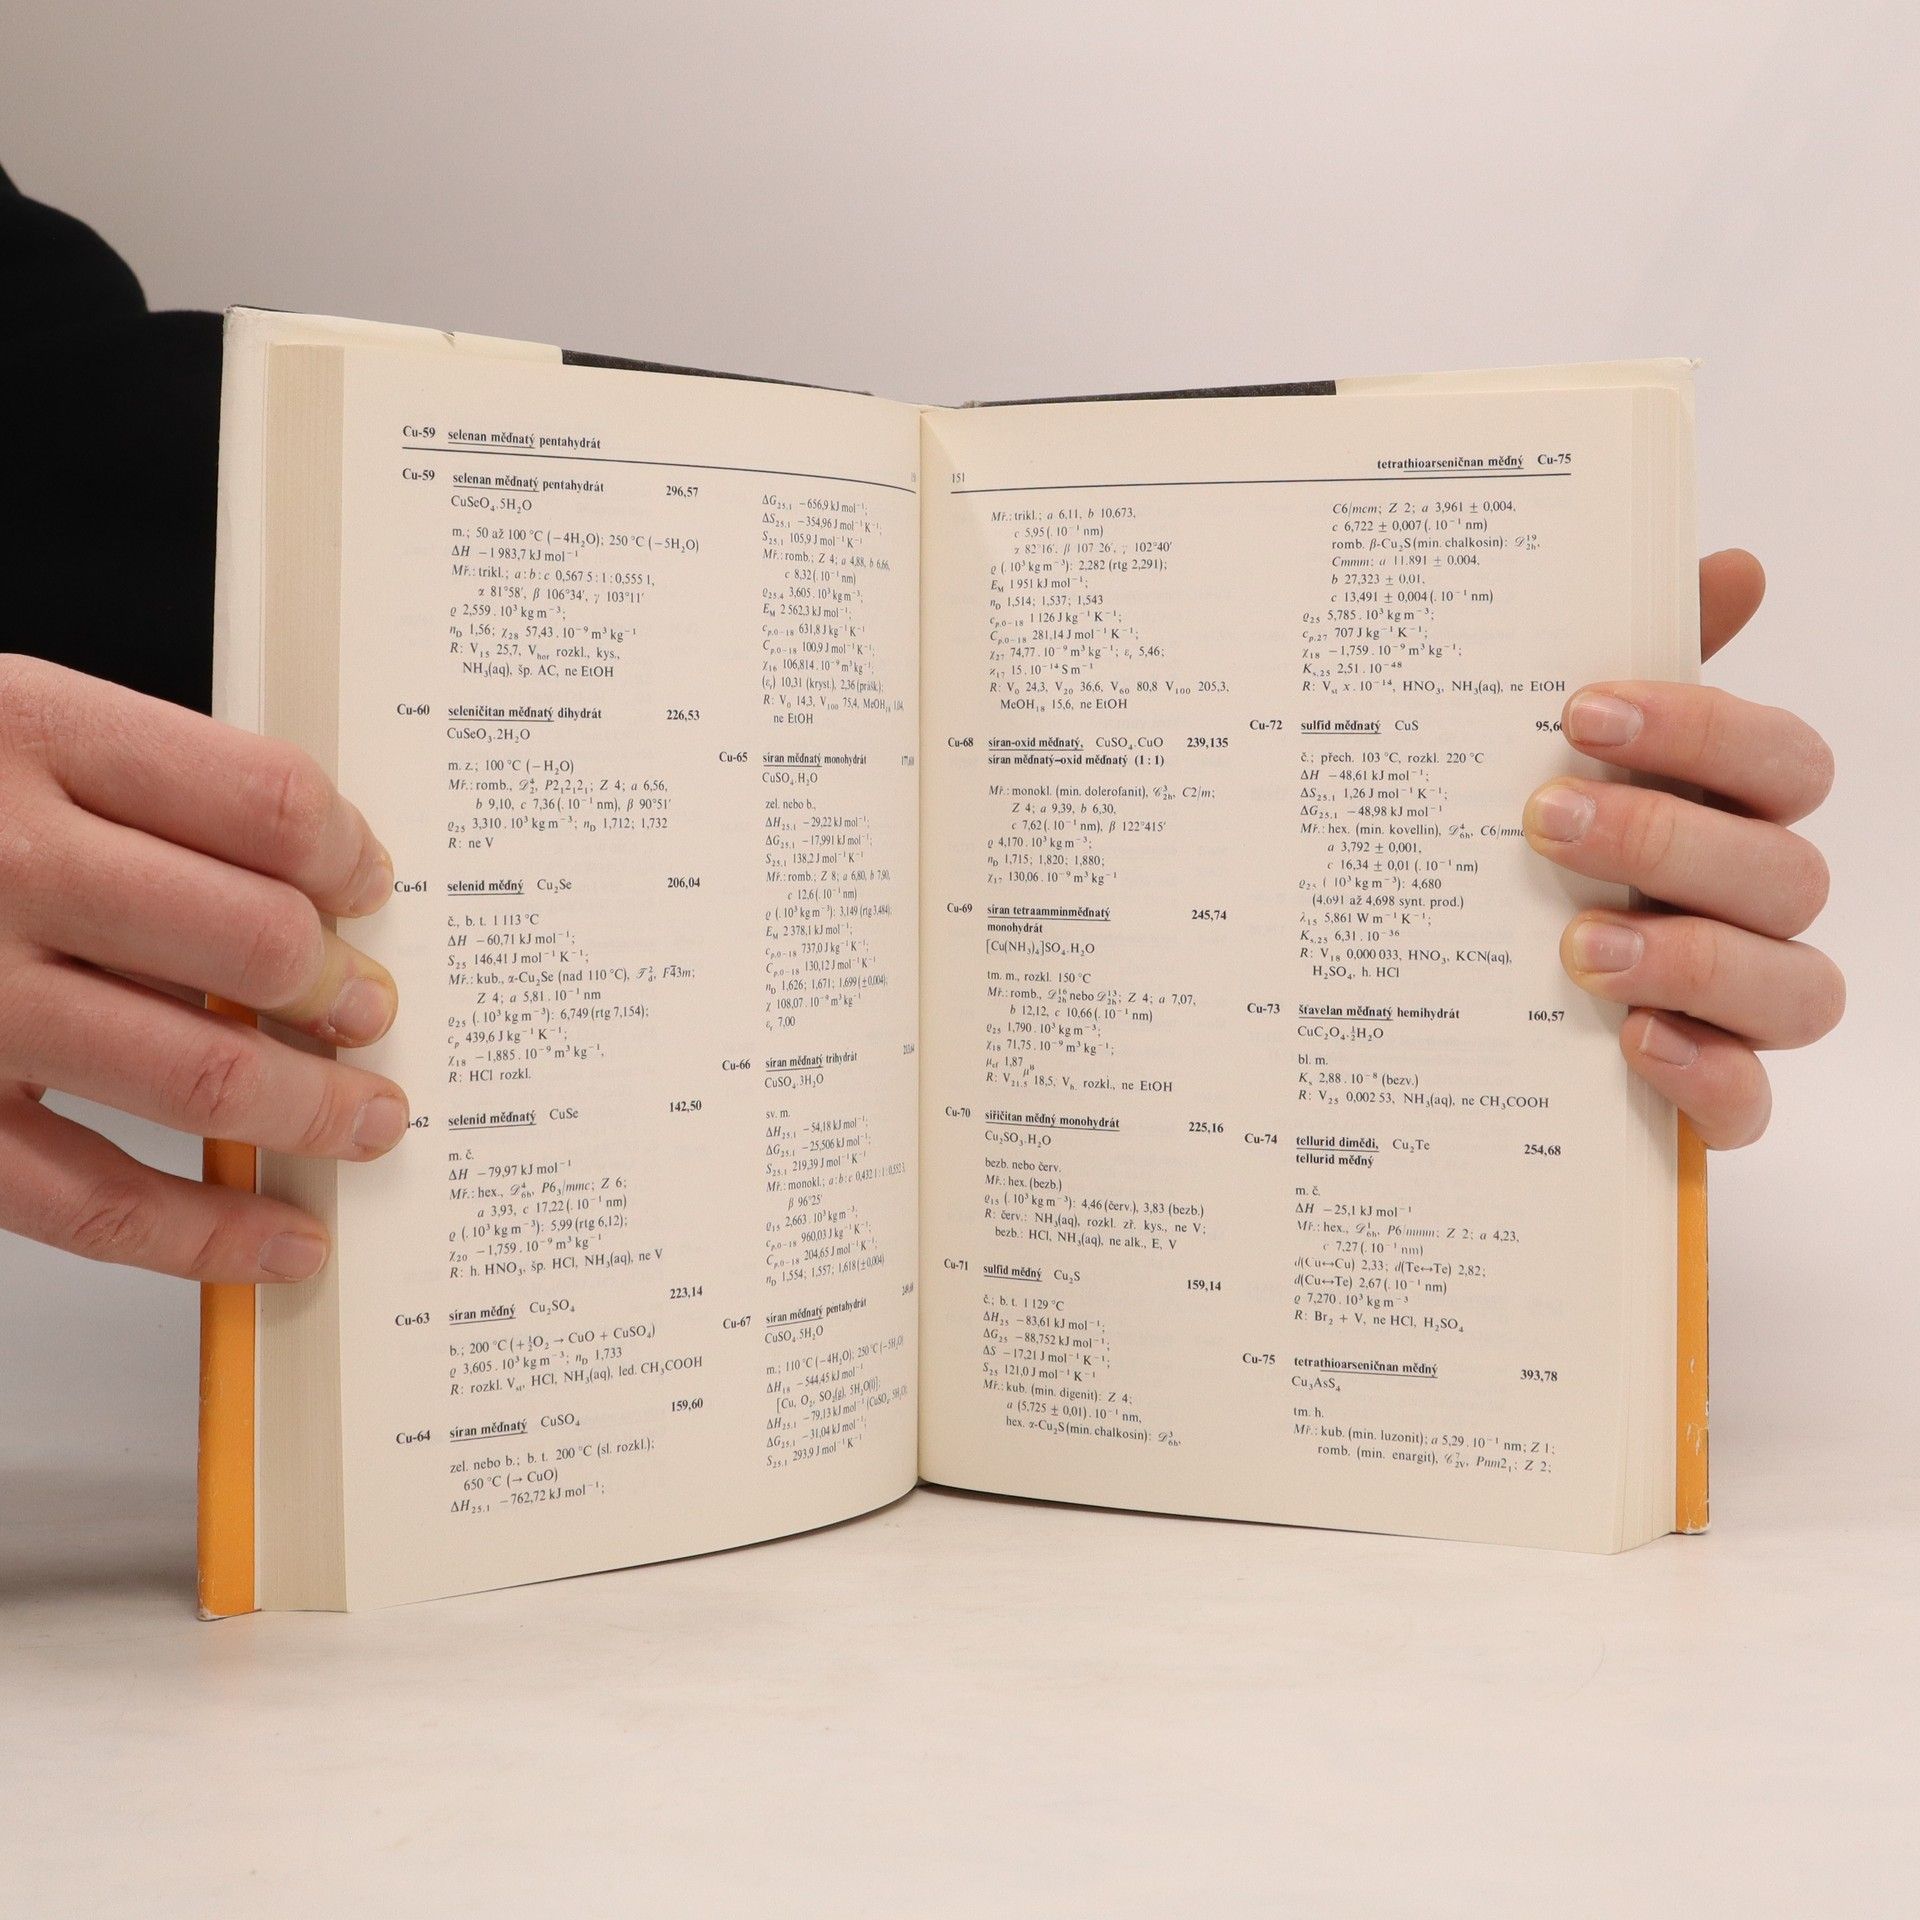 Cu-59 selenan měďnatý pentahydrát
Cu-59 selenan měďnatý pentahydrát 296,57
CuSeO₄.5H₂O
m.; 50 až 100 °C (−4H₂O); 250 °C (−5H₂O)
ΔH −1 983,7 kJ mol⁻¹
Mř.: trikl.; a:b:c 0,567 5:1:0,555 1,
α 81°58′, β 106°34′, γ 103°11′
ϱ 2,559.10³ kg m⁻³;
n_D 1,56; χ₂₈ 57,43.10⁻⁹ m³ kg⁻¹
R: V₁₅ 25,7, V_hor rozkl., kys.,
NH₃(aq), šp. AC, ne EtOH
Cu-60 seleničitan měďnatý dihydrát 226,53
CuSeO₃.2H₂O
m. z.; 100 °C (−H₂O)
Mř.: romb., 𝒟₂⁴, P2₁2₁2₁; Z 4; a 6,56,
b 9,10, c 7,36(.10⁻¹ nm), β 90°51′
ϱ₂₅ 3,310.10³ kg m⁻³; n_D 1,712; 1,732
R: ne V
Cu-61 selenid měďný Cu₂Se 206,04
č., b. t. 1 113 °C
ΔH −60,71 kJ mol⁻¹;
S₂₅ 146,41 J mol⁻¹ K⁻¹;
Mř.: kub., α-Cu₂Se (nad 110 °C), 𝒯_d², F4̄3m;
Z 4; a 5,81.10⁻¹ nm
ϱ₂₅ (.10³ kg m⁻³): 6,749 (rtg 7,154);
c_p 439,6 J kg⁻¹ K⁻¹;
χ₁₈ −1,885.10⁻⁹ m³ kg⁻¹,
R: HCl rozkl.
-62 selenid měďnatý CuSe 142,50
m. č.
ΔH −79,97 kJ mol⁻¹
Mř.: hex., 𝒟_6h⁴, P6₃/mmc; Z 6;
a 3,93, c 17,22(.10⁻¹ nm)
ϱ (.10³ kg m⁻³): 5,99 (rtg 6,12);
χ₂₀ −1,759.10⁻⁹ m³ kg⁻¹
R: h. HNO₃, šp. HCl, NH₃(aq), ne V
Cu-63 síran měďný Cu₂SO₄ 223,14
b.; 200 °C (+½O₂ → CuO + CuSO₄)
ϱ 3,605.10³ kg m⁻³; n_D 1,733
R: rozkl. V_st, HCl, NH₃(aq), led. CH₃COOH
Cu-64 síran měďnatý CuSO₄ 159,60
zel. nebo b.; b. t. 200 °C (sl. rozkl.);
650 °C (→ CuO)
ΔH₂₅,₁ −762,72 kJ mol⁻¹;
ΔG₂₅,₁ −656,9 kJ mol⁻¹;
ΔS₂₅,₁ −354,96 J mol⁻¹ K⁻¹;
S₂₅,₁ 105,9 J mol⁻¹ K⁻¹
Mř.: romb.; Z 4; a 4,88, b 6,66,
c 8,32(.10⁻¹ nm)
ϱ₂₅,₄ 3,605.10³ kg m⁻³;
E_M 2 562,3 kJ mol⁻¹;
c_p,0−18 631,8 J kg⁻¹ K⁻¹
C_p,0−18 100,9 J mol⁻¹ K⁻¹;
χ₁₆ 106,814.10⁻⁹ m³ kg⁻¹;
(ε_r) 10,31 (kryst.), 2,36 (prášk.);
R: V₀ 14,3, V₁₀₀ 75,4, MeOH₁₈ 1,04,
ne EtOH
Cu-65 síran měďnatý monohydrát
CuSO₄.H₂O
zel. nebo b.,
ΔH₂₅,₁ −29,22 kJ mol⁻¹;
ΔG₂₅,₁ −17,991 kJ mol⁻¹;
S₂₅,₁ 138,2 J mol⁻¹ K⁻¹
Mř.: romb.; Z 8; a 6,80, b 7,90,
c 12,6(.10⁻¹ nm)
ϱ (.10³ kg m⁻³): 3,149 (rtg 3,484);
E_M 2 378,1 kJ mol⁻¹;
c_p,0−18 737,0 J kg⁻¹ K⁻¹;
C_p,0−18 130,12 J mol⁻¹ K⁻¹;
n_D 1,626; 1,671; 1,699 (±0,004);
χ 108,07.10⁻⁹ m³ kg⁻¹
ε_r 7,00
Cu-66 síran měďnatý trihydrát
CuSO₄.3H₂O
sv. m.
ΔH₂₅,₁ −54,18 kJ mol⁻¹;
ΔG₂₅,₁ −25,506 kJ mol⁻¹;
S₂₅,₁ 219,39 J mol⁻¹ K⁻¹
Mř.: monokl.; a:b:c
β 96°25′
ϱ₁₅ 2,663.10³ kg m⁻³;
c_p,0−18 960,03 J kg⁻¹ K⁻¹;
C_p,0−18 204,65 J mol⁻¹ K⁻¹;
n_D 1,554; 1,557; 1,618 (±0,004)
Cu-67 síran měďnatý pentahydrát
CuSO₄.5H₂O
m.; 110 °C (−4H₂O); 250 °C (−5H₂O)
ΔH₁₈ −544,45 kJ mol⁻¹
[Cu, O₂, SO₂(g), 5H₂O(l)];
ΔH₂₅,₁ −79,13 kJ mol⁻¹ (CuSO₄, 5H₂O);
ΔG₂₅,₁ −31,04 kJ mol⁻¹;
S₂₅,₁ 293,9 J mol⁻¹ K⁻¹
151 tetrathioarseničnan měďný Cu-75
Mř.: trikl.; a 6,11, b 10,673,
c 5,95(.10⁻¹ nm)
α 82°16′, β 107 26′, γ 102°40′
ϱ (.10³ kg m⁻³): 2,282 (rtg 2,291);
E_M 1 951 kJ mol⁻¹;
n_D 1,514; 1,537; 1,543
c_p,0−18 1 126 J kg⁻¹ K⁻¹;
C_p,0−18 281,14 J mol⁻¹ K⁻¹;
χ₂₇ 74,77.10⁻⁹ m³ kg⁻¹; ε_r 5,46;
χ₁₇ 15.10⁻¹⁴ S m⁻¹
R: V₀ 24,3, V₂₀ 36,6, V₆₀ 80,8 V₁₀₀ 205,3,
MeOH₁₈ 15,6, ne EtOH
Cu-68 síran-oxid měďnatý, CuSO₄.CuO 239,135
síran měďnatý–oxid měďnatý (1 : 1)
Mř.: monokl. (min. dolerofanit), 𝒞_2h³, C2/m;
Z 4; a 9,39, b 6,30,
c 7,62(.10⁻¹ nm), β 122°415′
ϱ 4,170.10³ kg m⁻³;
n_D 1,715; 1,820; 1,880;
χ₁₇ 130,06.10⁻⁹ m³ kg⁻¹
Cu-69 síran tetraamminměďnatý 245,74
monohydrát
[Cu(NH₃)₄]SO₄.H₂O
tm. m., rozkl. 150 °C
Mř.: romb., 𝒟_2h¹⁶ nebo 𝒟_2h¹³; Z 4; a 7,07,
b 12,12, c 10,66(.10⁻¹ nm)
ϱ₂₅ 1,790.10³ kg m⁻³;
χ₁₈ 71,75.10⁻⁹ m³ kg⁻¹;
μ_ef 1,87 μ_B
R: V₂₁,₅ 18,5, V_h. rozkl., ne EtOH
Cu-70 siřičitan měďný monohydrát 225,16
Cu₂SO₃.H₂O
bezb. nebo červ.
Mř.: hex. (bezb.)
ϱ₁₅ (.10³ kg m⁻³): 4,46 (červ.), 3,83 (bezb.)
R: červ.: NH₃(aq), rozkl. zř. kys., ne V;
bezb.: HCl, NH₃(aq), ne alk., E, V
Cu-71 sulfid měďný Cu₂S 159,14
č.; b. t. 1 129 °C
ΔH₂₅ −83,61 kJ mol⁻¹;
ΔG₂₅ −88,752 kJ mol⁻¹;
ΔS −17,21 J mol⁻¹ K⁻¹;
S₂₅ 121,0 J mol⁻¹ K⁻¹
Mř.: kub. (min. digenit): Z 4;
a (5,725 ± 0,01).10⁻¹ nm,
hex. α-Cu₂S (min. chalkosin): 𝒟_6h³,
C6/mcm; Z 2; a 3,961 ± 0,004,
c 6,722 ± 0,007(.10⁻¹ nm)
romb. β-Cu₂S (min. chalkosin): 𝒟_2h¹⁹,
Cmmm; a 11,891 ± 0,004,
b 27,323 ± 0,01,
c 13,491 ± 0,004(.10⁻¹ nm)
ϱ₂₅ 5,785.10³ kg m⁻³;
c_p,27 707 J kg⁻¹ K⁻¹;
χ₁₈ −1,759.10⁻⁹ m³ kg⁻¹;
K_s,25 2,51.10⁻⁴⁸
R: V_st x.10⁻¹⁴, HNO₃, NH₃(aq), ne EtOH
Cu-72 sulfid měďnatý CuS 95,6
č.; přech. 103 °C, rozkl. 220 °C
ΔH −48,61 kJ mol⁻¹;
ΔS₂₅,₁ 1,26 J mol⁻¹ K⁻¹;
ΔG₂₅,₁ −48,98 kJ mol⁻¹
Mř.: hex. (min. kovellin), 𝒟_6h⁴, C6/mmc
a 3,792 ± 0,001,
c 16,34 ± 0,01 (.10⁻¹ nm)
ϱ₂₅ ( 10³ kg m⁻³): 4,680
(4,691 až 4,698 synt. prod.)
λ₁₅ 5,861 W m⁻¹ K⁻¹;
K_s,25 6,31.10⁻³⁶
R: V₁₈ 0,000 033, HNO₃, KCN(aq),
H₂SO₄, h. HCl
Cu-73 šťavelan měďnatý hemihydrát 160,57
CuC₂O₄.½H₂O
bl. m.
K_s 2,88.10⁻⁸ (bezv.)
R: V₂₅ 0,002 53, NH₃(aq), ne CH₃COOH
Cu-74 tellurid dimědi, Cu₂Te 254,68
tellurid měďný
m. č.
ΔH −25,1 kJ mol⁻¹
Mř.: hex., 𝒟_6h¹, P6/mmm; Z 2; a 4,23,
c 7,27(.10⁻¹ nm)
d(Cu↔Cu) 2,33; d(Te↔Te) 2,82;
d(Cu↔Te) 2,67(.10⁻¹ nm)
ϱ 7,270.10³ kg m⁻³
R: Br₂ + V, ne HCl, H₂SO₄
Cu-75 tetrathioarseničnan měďný 393,78
Cu₃AsS₄
tm. h.
Mř.: kub. (min. luzonit); a 5,29.10⁻¹ nm; Z 1;
romb. (min. enargit), 𝒞_2v⁷, Pnm2₁; Z 2;